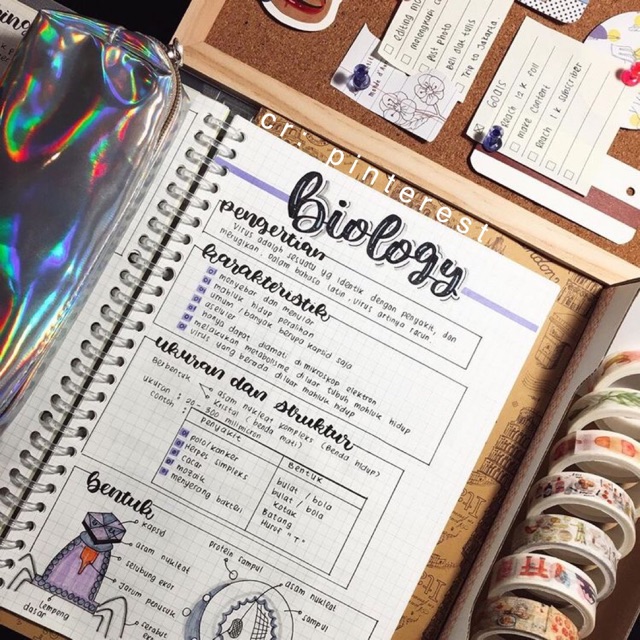 editing
melengkapi
Post photo
Beli alat tulis
Trip to Jakarta
GOALS
Reach 12 K foll
more content
Reach 1 K subscriber
cr: pinterest
biology
pengertian
Virus adalah sesuatu yg identik dengan penyakit, dan
merugikan. Dalam bahasa latin, virus artinya racun.
karakteristik
menyebar dan menular
makhluk hidup peralihan
umum / banyak berupa kapsid saja
aseluler
hanya dapat diamati di mikroskop elektron
melakukan metabolisme di luar tubuh makhluk hidup
virus yang berada di luar makhluk hidup
ukuran dan struktur
Berbentuk
asam nukleat kompleks (benda hidup?)
kristal (benda mati?)
ukuran : 20 - 300 milimikron
contoh :
penyakit
Bentuk
polio / kanker
bulat / bola
Herpes simpleks
bulat / bola
cacar
kotak
mozaik
Batang
menyerang bakteri
Huruf "T"
bentuk
kapsid
asam nukleat
selubung ekor
jarum penusuk
serabut
lempeng
dasar
protein sampul
asam nukleat
sampul